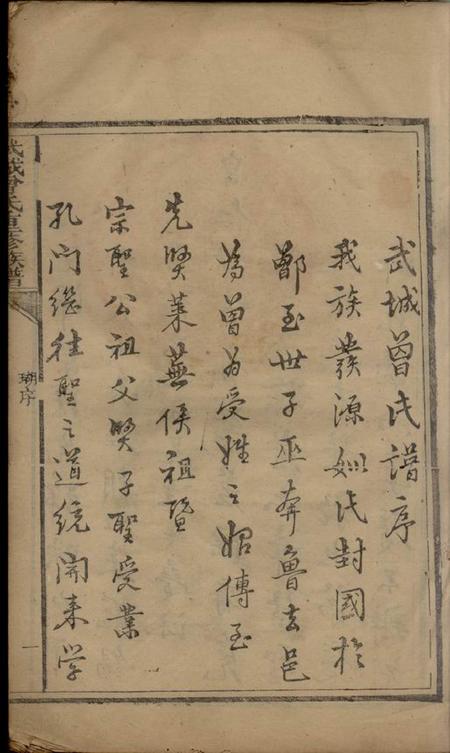 武城曾氏譜序
我族發源姒氏封國於
鄫至世子巫奔魯去邑
為曾為受姓之始傳至
先賢萊蕪侯祖暨
宗聖公祖父賢子聖受業
孔門繼往聖之道統開來学
武城曾氏重修族譜
序
一